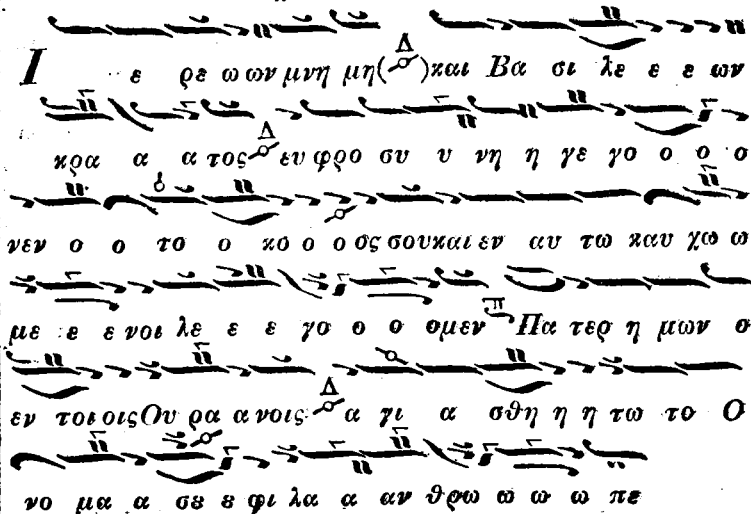 Ι ε ρε ω ων μνη μη(Δ)και Βα σι λε ε ε ων
κρα α α τος Δ ευ φρο συ υ νη η γε γο ο ο σ
νεν ο ο το ο κο ο ο σς σου και εν αυ τω καυ χω ω
με ε ε νοι λε ε ε γο ο ο ομεν π Πα τερ η μων ο
εν τοι οις Ου ρα α νοις Δ α γι α σθη η η τω το Ο
νο μα α σε ε φι λα α αν θρω ω ω ω πε